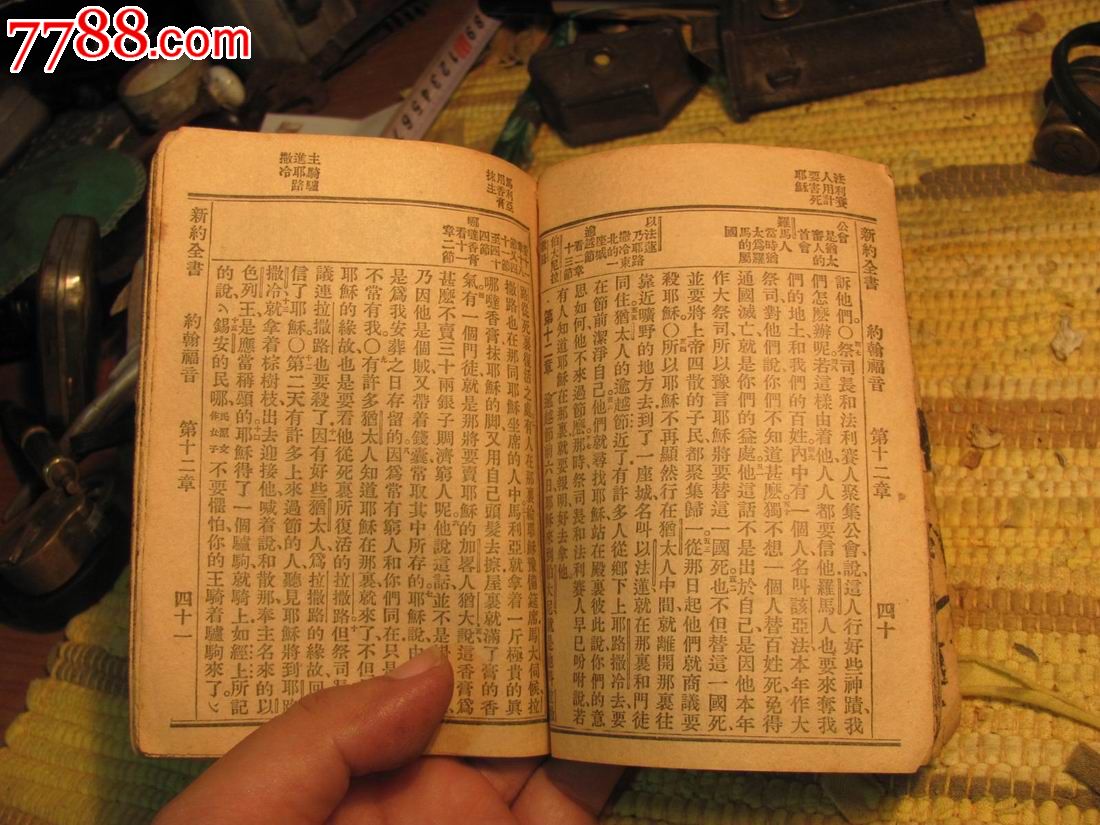 7788.com
法利賽
人用計
要害死
耶穌
新約全書
約翰福音
第十二章
四十
公會
是猶太
審人的
首會
羅馬人
當時猶
太爲羅
馬的屬
國
以法蓮
乃耶路
撒冷東
北的一
座城
逾越節
看
十三節
訴他們〇祭司長和法利賽人聚集公會、說、這人行好些神蹟、我
們怎麽辦呢若這樣由着他、人人都要信他羅馬人也要來奪我
們的地土、和我們的百姓內中有一個人名叫該亞法本年作大
祭司、對他們說你們不知道甚麽獨不想一個人替百姓死免得
通國滅亡、就是你們的益處他這話不是出於自己是因他本年
作大祭司、所以豫言耶穌將要替這一國死也不但替這一國死
並要將上帝四散的子民、都聚集歸一從那日起他們就商議要
殺耶穌〇所以耶穌不再顯然行在猶太人中間、就離開那裏往
靠近曠野的地方去到了一座城、名叫以法蓮就在那裏和門徒
同住猶太人的逾越節近了有許多人從鄉下上耶路撒冷去要
在節前潔淨自己他們就尋找耶穌站在殿裏彼此說你們的意
思如何他不來過節麽那時祭司長和法利賽人早已吩咐說若
有人知道耶穌在那裏就要報明、好去拿他
第十二章
馬利亞
用香膏
抹主
主騎驢
進耶路
撒冷
新約全書
約翰福音
第十二章
四十一
哪噠香膏
看十一
章二節
撒路也在那同耶穌坐席的人中馬利亞就拿着一斤極貴的眞
哪噠香膏抹耶穌的脚又用自己頭髮去擦屋裏就滿了膏的香
氣有一個門徒就是那將要賣耶穌的加畧人猶大說這香膏爲
甚麽不賣三十兩銀子賙濟窮人呢他說這話、並不是
乃因他是個賊又帶着錢囊常取其中所存的耶穌說、由
是爲我安葬之日存留的因爲常有窮人和你們同在只是
不常有我〇有許多猶太人知道耶穌在那裏就來了不但
耶穌的緣故、也是要看他從死裏所復活的拉撒路但祭司
議連拉撒路也要殺了因有好些猶太人爲拉撒路的緣故、回
信了耶穌〇第二天有許多上來過節的人聽見耶穌將到耶路
撒冷就拿着棕樹枝出去迎接他喊着說和散那奉主名來的以
色列王是應當稱頌的耶穌得了一個驢駒就騎上如經上所記
的說、錫安的民哪、民原文作女子不要懼怕你的王騎着驢駒來了